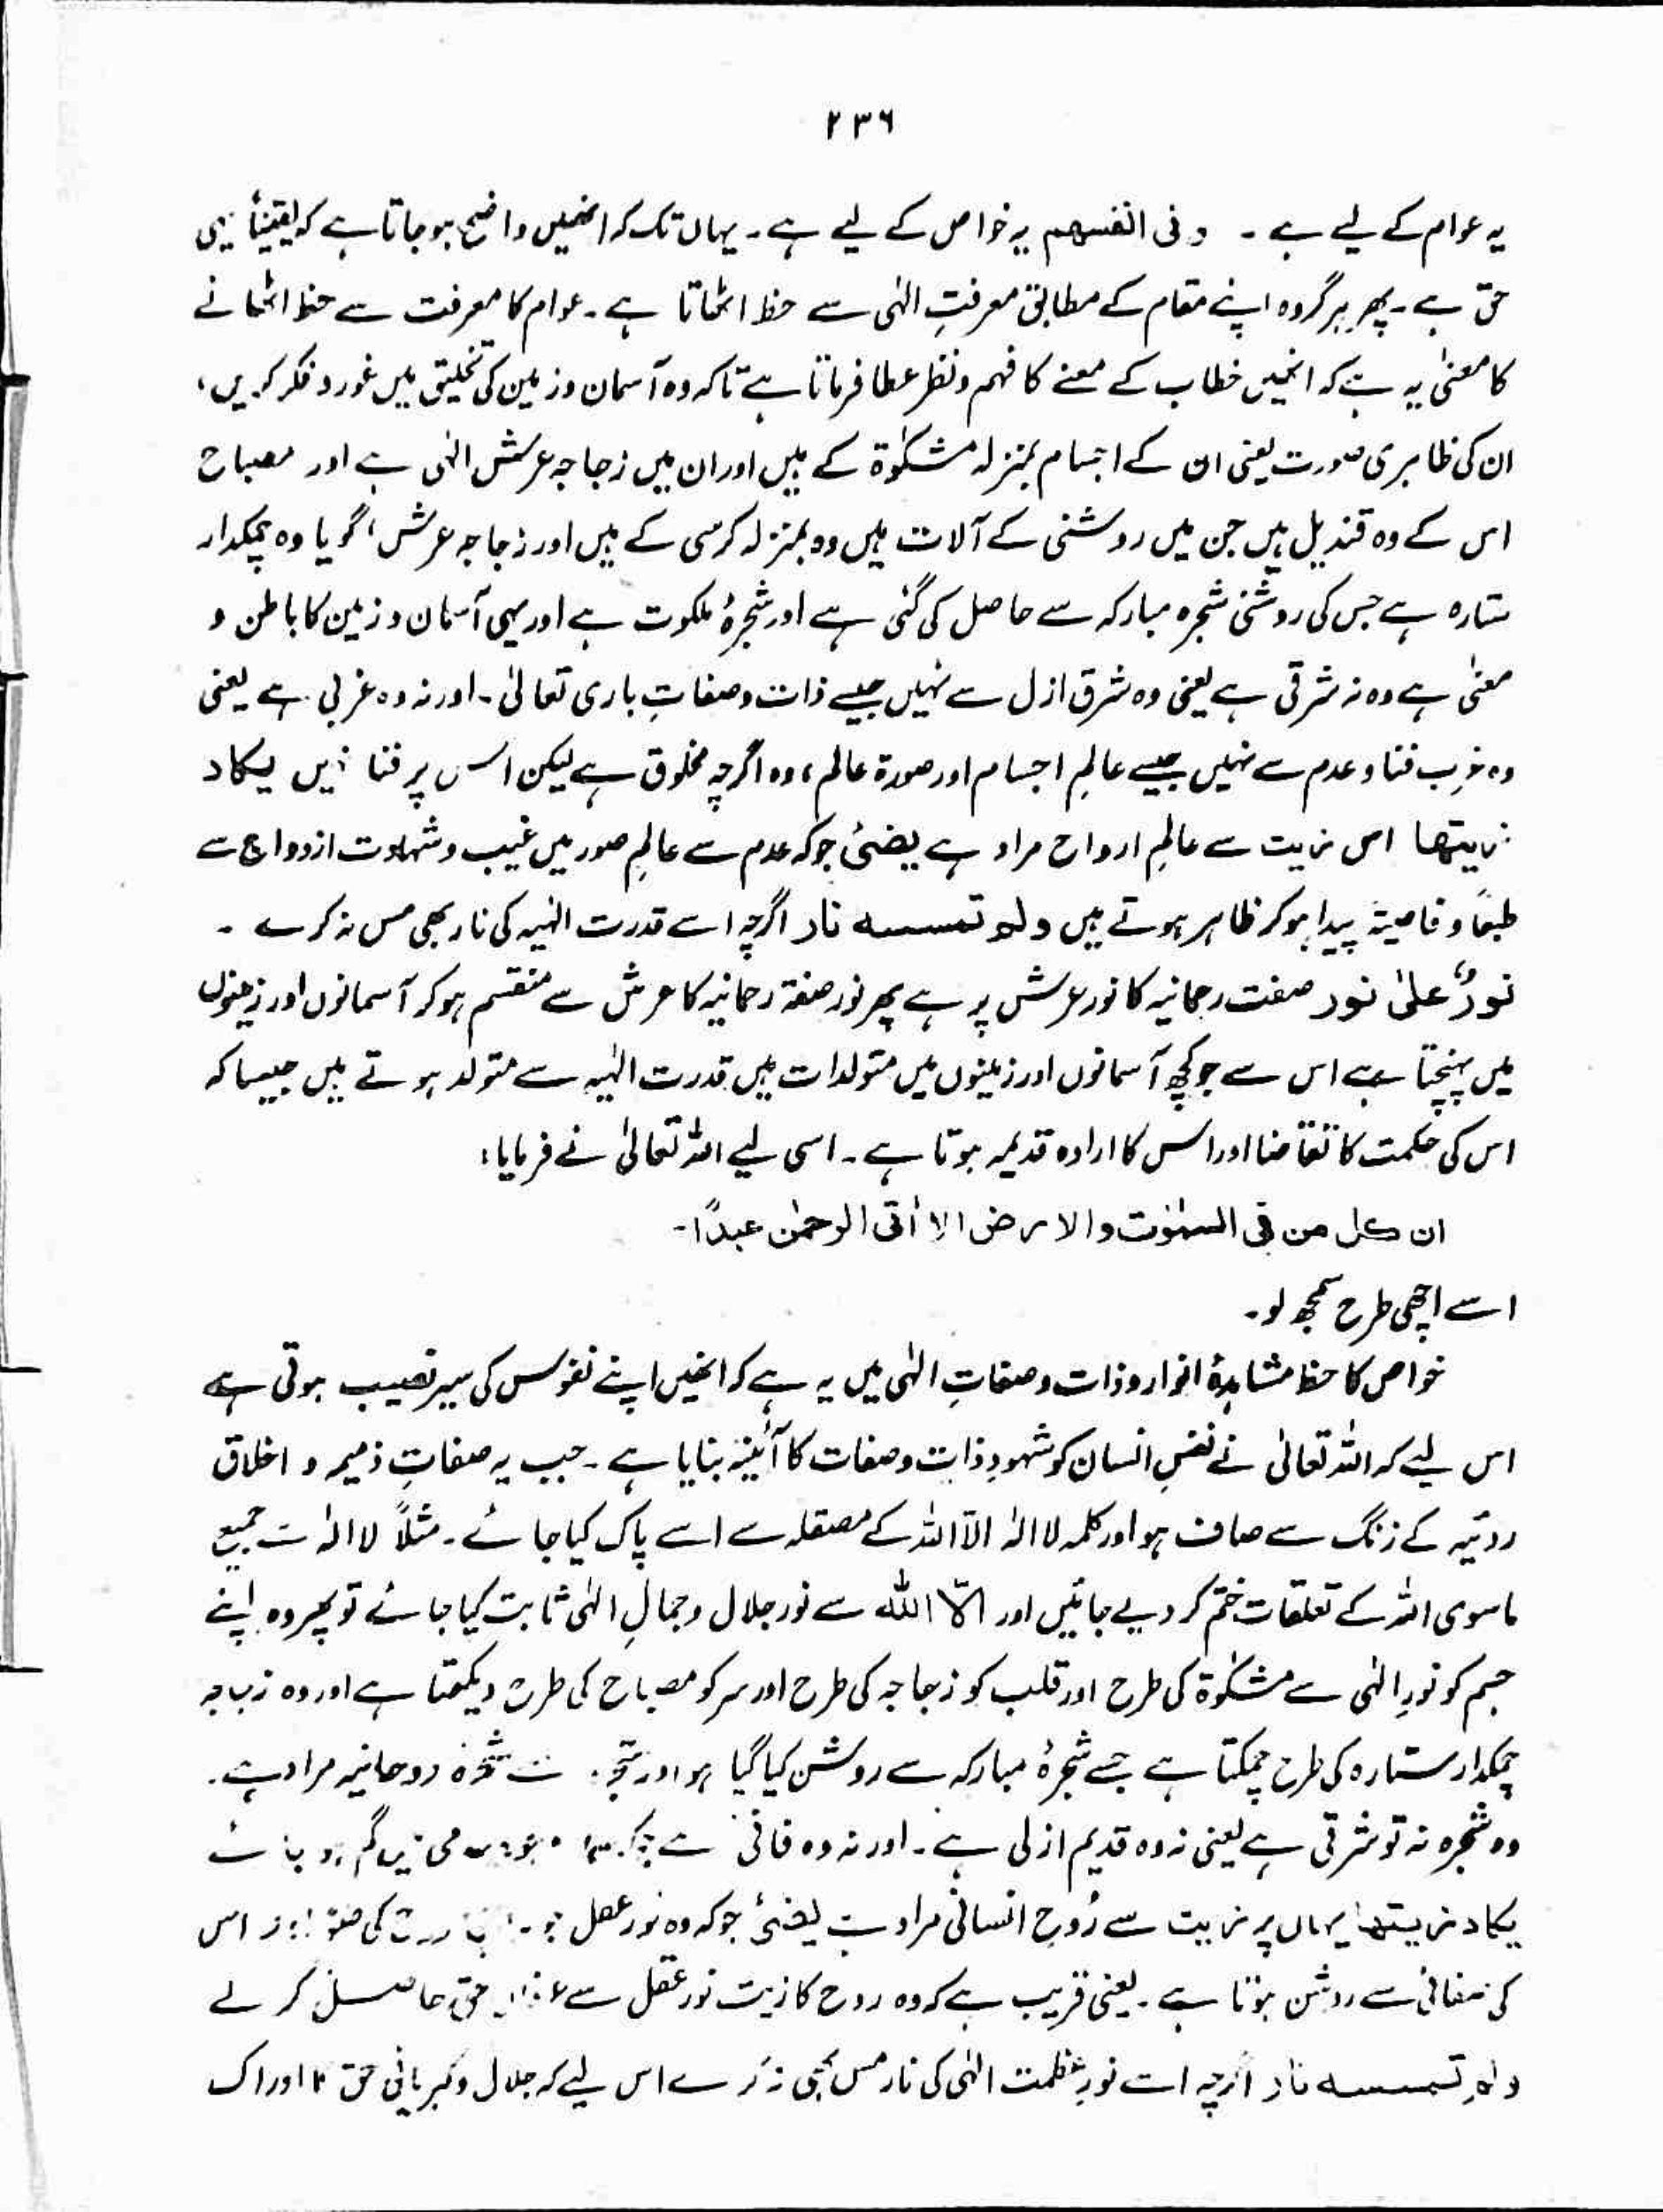 ۲۳۶
یہ عوام کے لیے ہے ۔ وفی انفسھم یہ خواص کے لیے ہے ۔ یہاں تک کہ انھیں واضح ہو جاتا ہے کہ یقیناً یہی
حق ہے ۔ پھر ہر گروہ اپنے مقام کے مطابق معرفتِ الٰہی سے حظ اٹھاتا ہے ۔ عوام کا معرفت سے حظ اٹھانے
کا معنیٰ یہ ہے کہ انھیں خطاب کے معنے کا فہم و نظر عطا فرماتا ہے تاکہ وہ آسمان و زمین کی تخلیق میں غور و فکر کریں ،
ان کی ظاہری صورت یعنی ان کے اجسام بمنزلہ مشکوٰۃ کے ہیں اور ان میں زجاجہ عرش الٰہی ہے اور مصباح
اس کے وہ قندیل ہیں جن میں روشنی کے آلات ہیں وہ بمنزلہ کرسی کے ہیں اور زجاجہ عرش ، گویا وہ چمکدار
ستارہ ہے جس کی روشنی شجرہ مبارکہ سے حاصل کی گئی ہے اور شجرۂ ملکوت ہے اور یہی آسمان و زمین کا باطن و
معنیٰ ہے وہ نہ شرقی ہے یعنی وہ شرق ازل سے نہیں جیسے ذات و صفاتِ باری تعالیٰ ۔ اور نہ وہ غربی ہے یعنی
وہ غربِ فنا و عدم سے نہیں جیسے عالمِ اجسام اور صورۃ عالم ، وہ اگرچہ مخلوق ہے لیکن اس پر فنا نہیں یکاد
زیتھا اس زیت سے عالمِ ارواح مراد ہے یضئ جو کہ عدم سے عالمِ صور میں غیب و شہادت ازدواج سے
طبعًا و خاصیۃ پیدا ہو کر ظاہر ہوتے ہیں ولو تمسسه نار اگرچہ اسے قدرت الٰہیہ کی نار بھی مس نہ کرے ۔
نورٌ علیٰ نور صفت رحمانیہ کا نور عرش پر ہے پھر نور صفۃ رحمانیہ کا عرش سے منقسم ہو کر آسمانوں اور زمینوں
میں پہنچتا ہے اس سے جو کچھ آسمانوں اور زمینوں میں متولدات ہیں قدرت الٰہیہ سے متولد ہوتے ہیں جیسا کہ
اس کی حکمت کا تقاضا اور اس کا ارادہ قدیمہ ہوتا ہے ۔ اسی لیے اللہ تعالیٰ نے فرمایا :
ان کل من فی السمٰوٰت والارض الا اٰتی الرحمٰن عبدًا ۔
اسے اچھی طرح سمجھ لو ۔
خواص کا حظ مشاہدۂ انوار و ذات و صفاتِ الٰہی میں یہ ہے کہ انھیں اپنے نفوس کی سیر نصیب ہوتی ہے
اس لیے کہ اللہ تعالیٰ نے نفسِ انسان کو شہودِ ذات و صفات کا آئینہ بنایا ہے ۔ جب یہ صفاتِ ذمیمہ و اخلاق
ردیّہ کے زنگ سے صاف ہو اور کلمہ لا الٰہ الّا اللہ کے مصقلہ سے اسے پاک کیا جائے ۔ مثلاً لا الٰہ سے جمیع
ماسوی اللہ کے تعلقات ختم کر دیے جائیں اور الّا اللہ سے نور جلال و جمالِ الٰہی ثابت کیا جائے تو پھر وہ اپنے
جسم کو نورِ الٰہی سے مشکوٰۃ کی طرح اور قلب کو زجاجہ کی طرح اور سر کو مصباح کی طرح دیکھتا ہے اور وہ زجاجہ
چمکدار ستارہ کی طرح چمکتا ہے جسے شجرۂ مبارکہ سے روشن کیا گیا ہو اور شجرہ سے شجرۂ روحانیہ مراد ہے ۔
وہ شجرہ نہ تو شرقی ہے یعنی نہ وہ قدیم ازلی ہے ۔ اور نہ وہ فانی ہے میں گم ہو جائے
یکاد زیتھا یہاں پر زیت سے رُوحِ انسانی مراد ہے یضئ جو کہ وہ نور عقل کی اس
کی صفائی سے روشن ہوتا ہے ۔ یعنی قریب ہے کہ وہ روح کا زیت نور عقل سے حق حاصل کر لے
ولو تمسسه نار اگرچہ اسے نورِ عظمت الٰہی کی نار مس بھی نہ کرے اس لیے کہ جلال و کبریائی حق کا ادراک